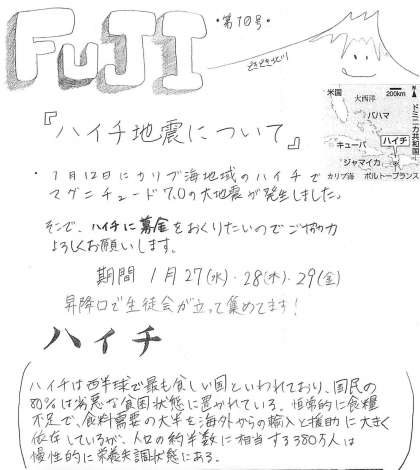 FUJI
・第10号・
ときどきつづり
『ハイチ地震について』
米国
200km
N
大西洋
バハマ
キューバ
ハイチ
ドミニカ共和国
ジャマイカ
カリブ海
ポルトープランス
・1月12日にカリブ海地域のハイチで
マグニチュード7.0の大地震が発生しました。
そこで、ハイチに募金をおくりたいのでご協力
よろしくお願いします。
期間 1月27(水)・28(木)・29(金)
昇降口で生徒会が立って集めてます!
ハイチ
ハイチは西半球で最も貧しい国といわれており、国民の
80%は劣悪な貧困状態に置かれている。恒常的に食糧
不足で、食料需要の大半を海外からの輸入と援助に大きく
依存しているが、人口の約半数に相当する380万人は
慢性的に栄養失調状態にある。